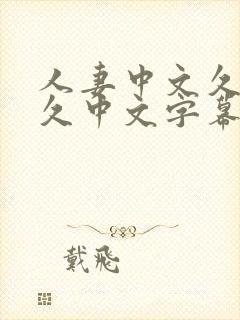 人妻中文久
久中文字幕
戴飛